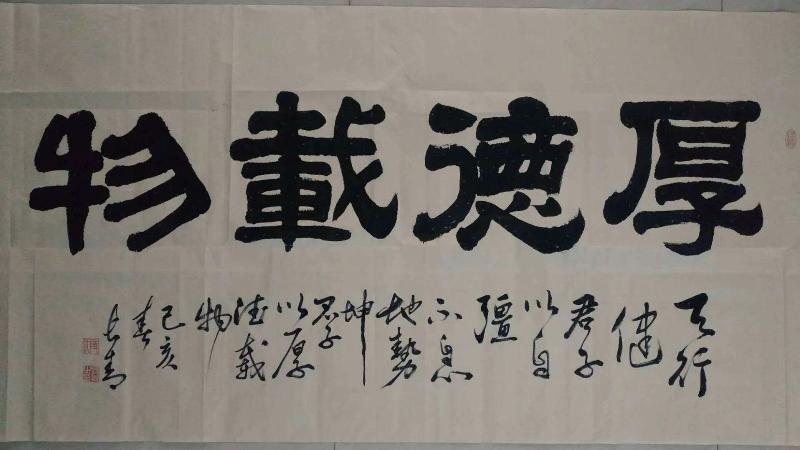 厚德載物
天行
健
君子
以自
彊
不息
地勢
坤
君子
以厚
德載
物
己亥
春